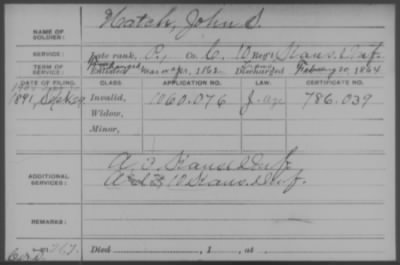 NAME OF SOLDIER: Hatch, John S.
SERVICE: Late rank, P, Co. C, 10 Reg't Kans. Inf.
TERM OF SERVICE: Enlisted Mar or Apr, 1862 Discharged February 20, 1864
DATE OF FILING. CLASS. APPLICATION NO. LAW. CERTIFICATE NO.
1891, Invalid, 1060.076 786.039
Widow,
Minor,
ADDITIONAL SERVICES: Kans. Inf.
10 Kans. Inf.
REMARKS:
Died , 1 , at .